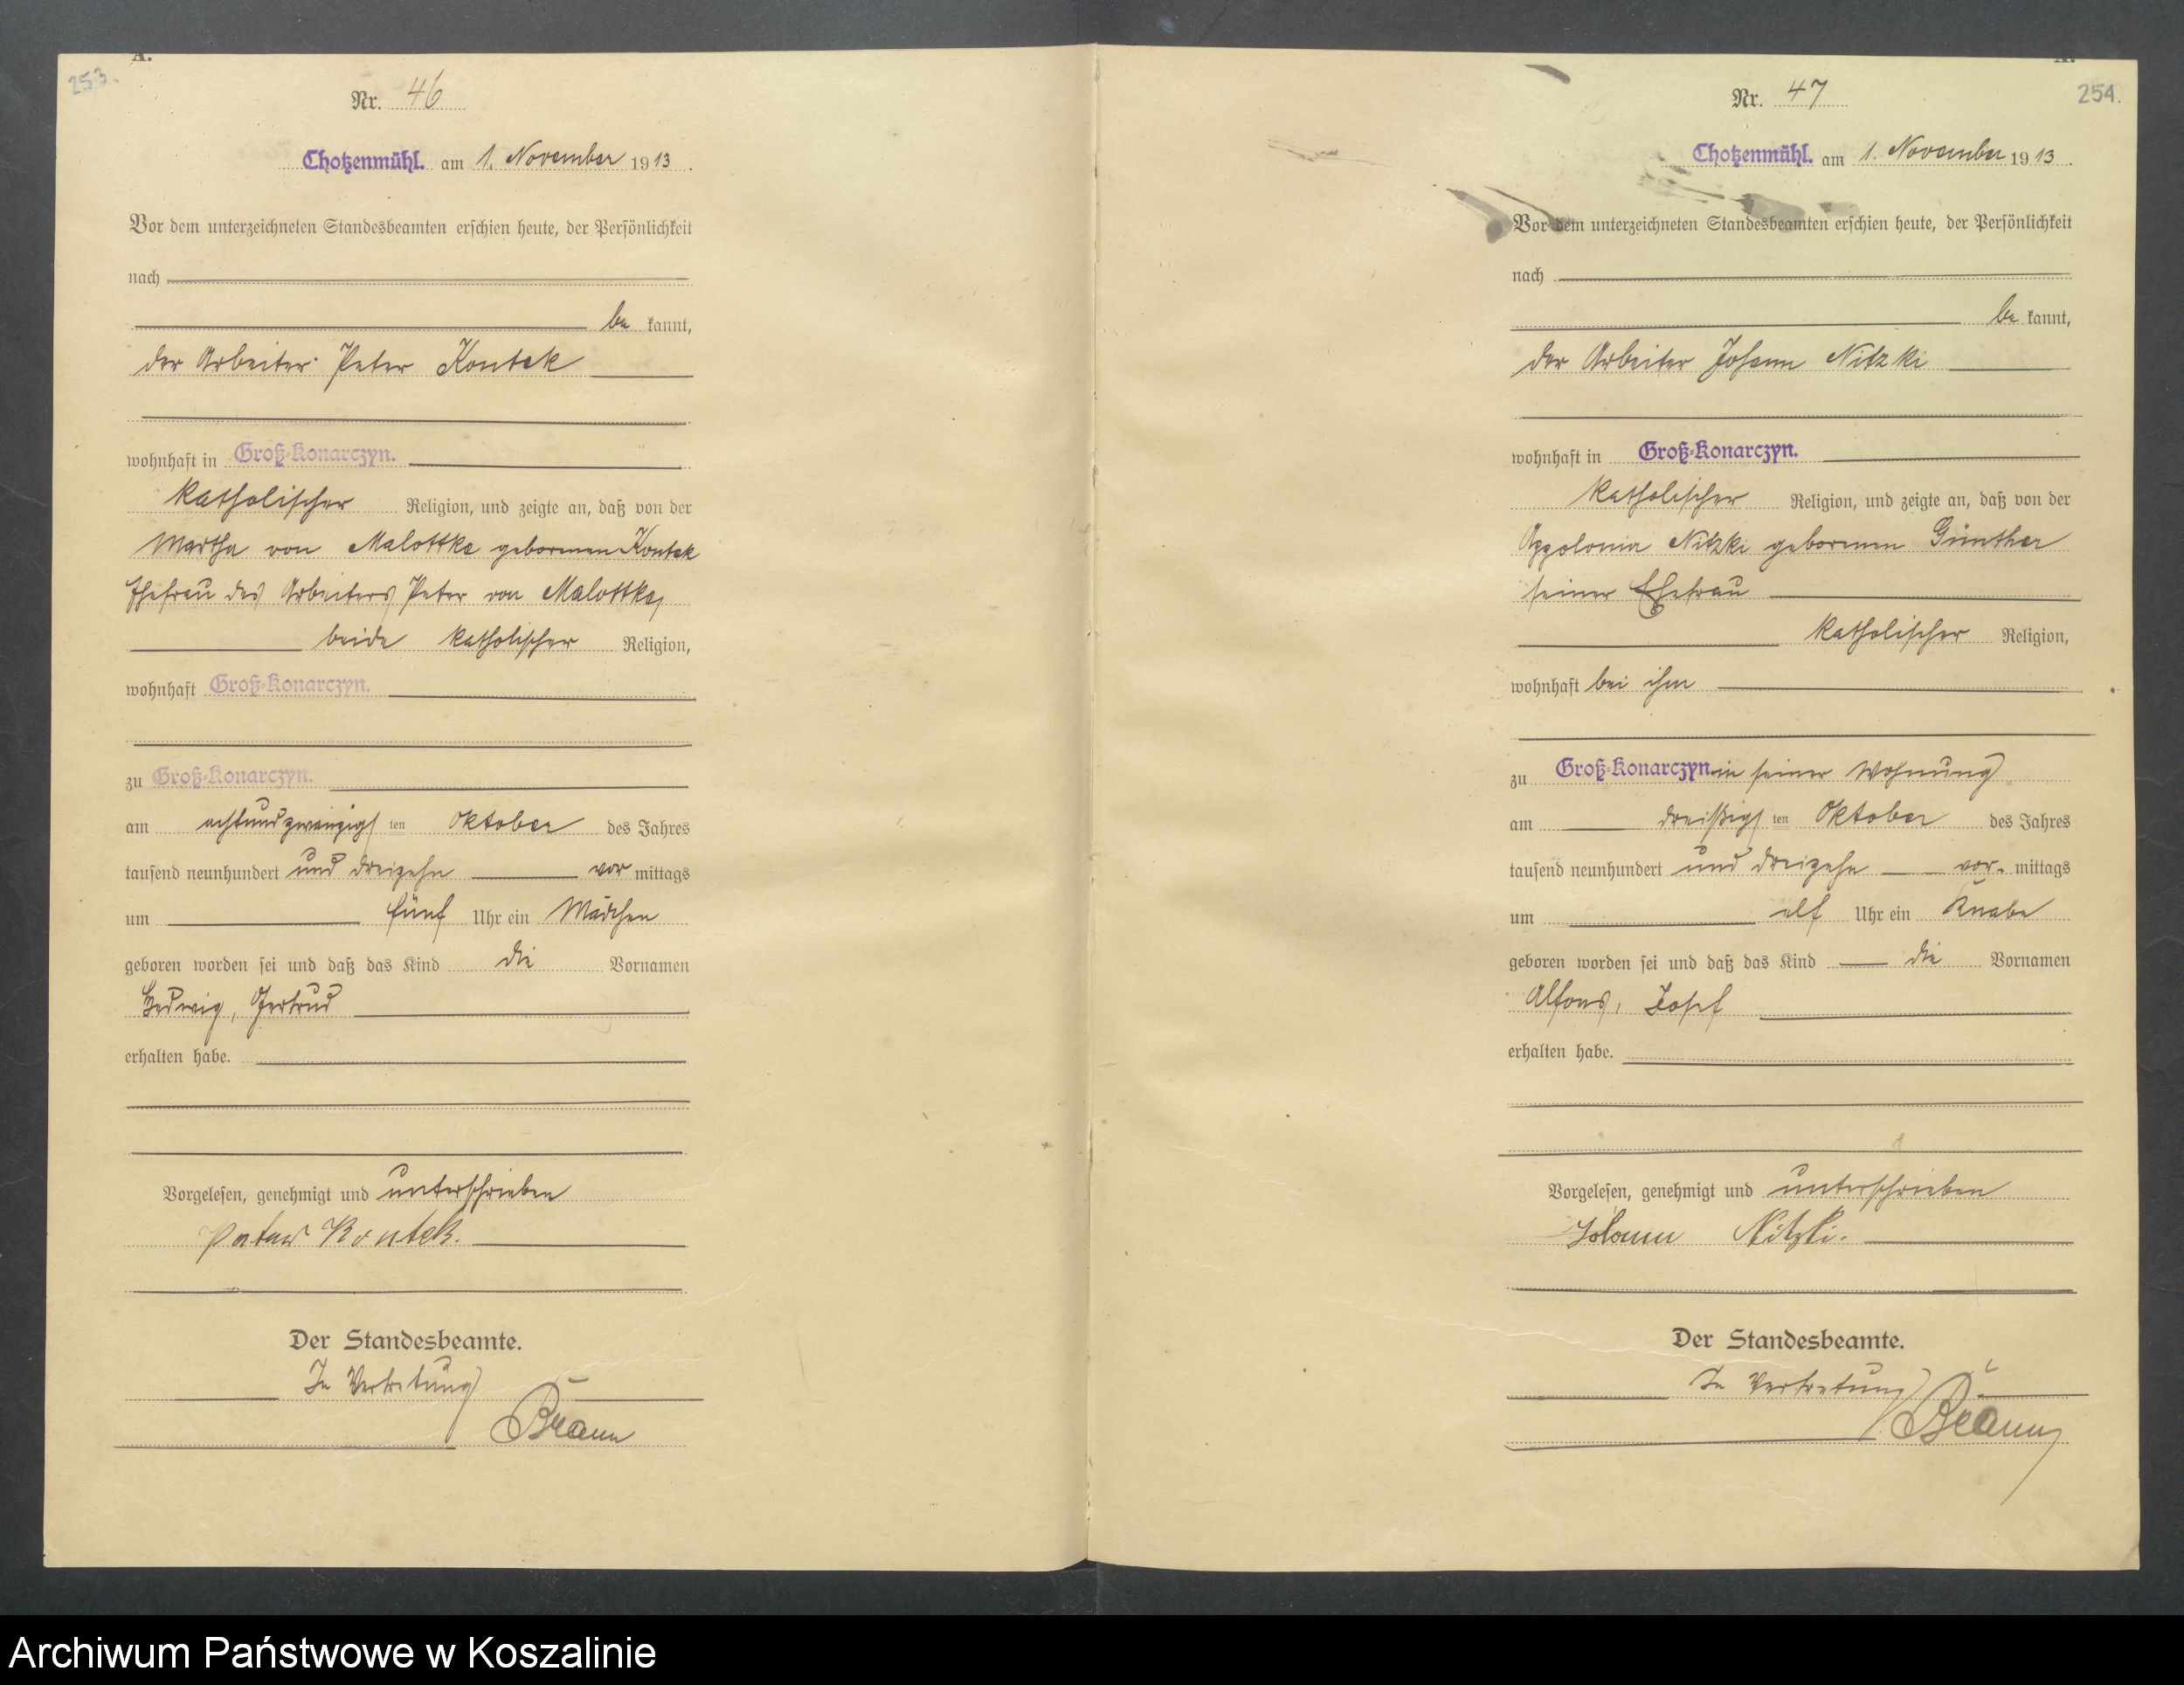 253.
A.
Nr. 46
Chotzenmühl. am 1. November 1913.
Vor dem unterzeichneten Standesbeamten erschien heute, der Persönlichkeit
nach
be kannt,
der Arbeiter Peter Kontek
wohnhaft in Groß-Konarczyn.
katholischer Religion, und zeigte an, daß von der
Martha von Malottke geborenen Kontek
Ehefrau des Arbeiters Peter von Malottke,
beide katholischer Religion,
wohnhaft Groß-Konarczyn.
zu Groß-Konarczyn.
am achtundzwanzigsten Oktober des Jahres
tausend neunhundert und dreizehn vor mittags
um fünf Uhr ein Mädchen
geboren worden sei und daß das Kind die Vornamen
Hedwig, Gertrud
erhalten habe.
Vorgelesen, genehmigt und unterschrieben
Peter Kontek.
Der Standesbeamte.
In Vertretung
Braun
A.
254.
Nr. 47
Chotzenmühl. am 1. November 1913.
Vor dem unterzeichneten Standesbeamten erschien heute, der Persönlichkeit
nach
be kannt,
der Arbeiter Johann Nitzki
wohnhaft in Groß-Konarczyn.
katholischer Religion, und zeigte an, daß von der
Appolonia Nitzki geborenen Günther
seiner Ehefrau
katholischer Religion,
wohnhaft bei ihm
zu Groß-Konarczyn in seiner Wohnung
am dreißigsten Oktober des Jahres
tausend neunhundert und dreizehn vor-mittags
um elf Uhr ein Knabe
geboren worden sei und daß das Kind die Vornamen
Alfons, Josef
erhalten habe.
Vorgelesen, genehmigt und unterschrieben
Johann Nitzki.
Der Standesbeamte.
In Vertretung
Braun
Archiwum Państwowe w Koszalinie